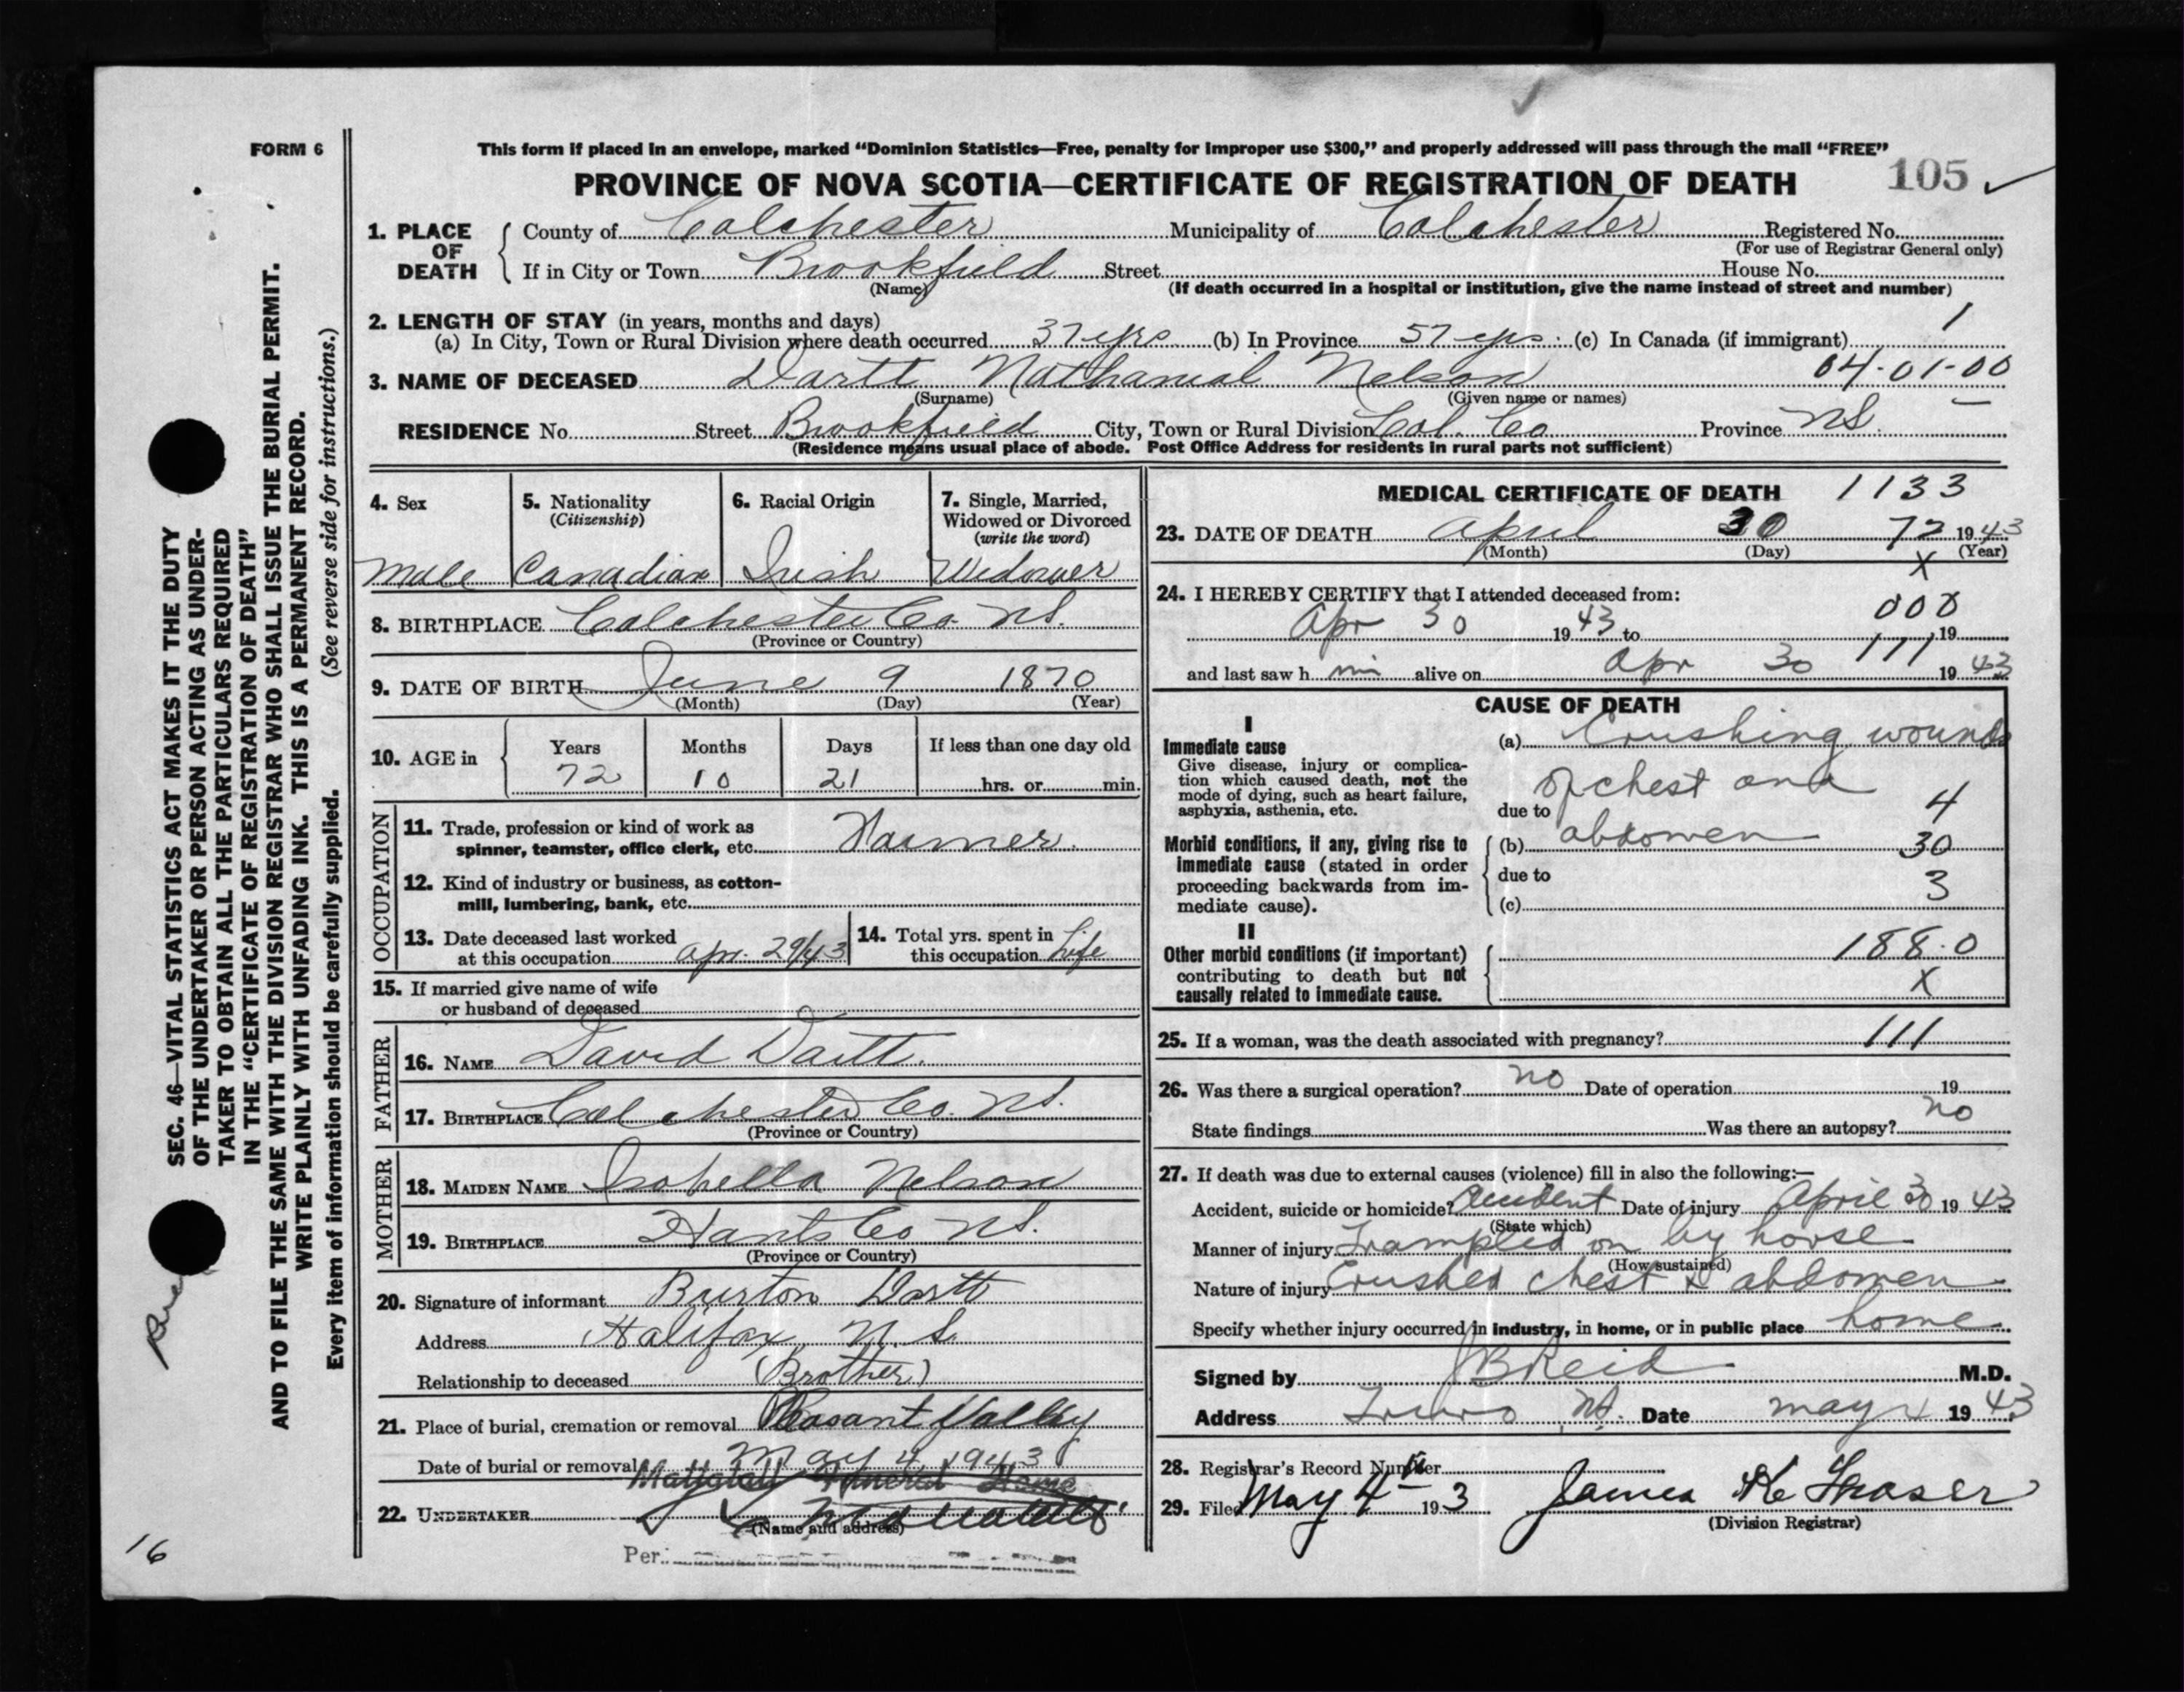 FORM 6
This form if placed in an envelope, marked “Dominion Statistics—Free, penalty for improper use $300,” and properly addressed will pass through the mail “FREE”
PROVINCE OF NOVA SCOTIA—CERTIFICATE OF REGISTRATION OF DEATH 105
1. PLACE OF DEATH
County of Colchester Municipality of Colchester Registered No.
(For use of Registrar General only)
If in City or Town Brookfield Street House No.
(Name) (If death occurred in a hospital or institution, give the name instead of street and number)
2. LENGTH OF STAY (in years, months and days) 1
(a) In City, Town or Rural Division where death occurred 37 yrs (b) In Province 57 yrs. (c) In Canada (if immigrant)
3. NAME OF DECEASED Dartt Nathanial Nelson 04-01-00
(Surname) (Given name or names)
RESIDENCE No. Street Brookfield City, Town or Rural Division Col. Co Province NS.
(Residence means usual place of abode. Post Office Address for residents in rural parts not sufficient)
4. Sex
Male
5. Nationality
(Citizenship)
Canadian
6. Racial Origin
Irish
7. Single, Married,
Widowed or Divorced
(write the word)
Widower
8. BIRTHPLACE Colchester Co. NS.
(Province or Country)
9. DATE OF BIRTH June 9 1870
(Month) (Day) (Year)
10. AGE in
Years Months Days If less than one day old
72 10 21 hrs. or min.
OCCUPATION
11. Trade, profession or kind of work as
spinner, teamster, office clerk, etc. Farmer.
12. Kind of industry or business, as cotton-
mill, lumbering, bank, etc.
13. Date deceased last worked
at this occupation apr. 29/43
14. Total yrs. spent in
this occupation Life
15. If married give name of wife
or husband of deceased
FATHER
16. NAME David Dartt.
17. BIRTHPLACE Colchester Co. NS.
(Province or Country)
MOTHER
18. MAIDEN NAME Isobella Nelson
19. BIRTHPLACE Hants Co NS.
(Province or Country)
20. Signature of informant Burton Dartt
Address Halifax N.S.
Relationship to deceased (Brother)
21. Place of burial, cremation or removal Pleasant Valley
Date of burial or removal May 4 1943
Mattatall Funeral Home
22. UNDERTAKER
(Name and address)
Per:
MEDICAL CERTIFICATE OF DEATH 1133
23. DATE OF DEATH April 30 72 1943
(Month) (Day) (Year)
X
24. I HEREBY CERTIFY that I attended deceased from:
000
Apr 30 1943 to 19
111
and last saw him alive on Apr 30 1943
CAUSE OF DEATH
I
Immediate cause
Give disease, injury or complica-
tion which caused death, not the
mode of dying, such as heart failure,
asphyxia, asthenia, etc.
(a) Crushing wounds
of chest and
due to 4
Morbid conditions, if any, giving rise to
immediate cause (stated in order
proceeding backwards from im-
mediate cause).
(b) abdomen 30
due to 3
(c)
II
Other morbid conditions (if important)
contributing to death but not
causally related to immediate cause.
188.0
X
25. If a woman, was the death associated with pregnancy? 111
26. Was there a surgical operation? no Date of operation 19
State findings Was there an autopsy? no
27. If death was due to external causes (violence) fill in also the following:—
Accident, suicide or homicide? Accident Date of injury April 30 1943
(State which)
Manner of injury Trampled on by horse
(How sustained)
Nature of injury Crushed chest & abdomen
Specify whether injury occurred in industry, in home, or in public place home
Signed by JBReid M.D.
Address Truro NS. Date may 4 1943
28. Registrar's Record Number
29. Filed May 4th 193 James K Fraser
(Division Registrar)
SEC. 46—VITAL STATISTICS ACT MAKES IT THE DUTY
OF THE UNDERTAKER OR PERSON ACTING AS UNDER-
TAKER TO OBTAIN ALL THE PARTICULARS REQUIRED
IN THE “CERTIFICATE OF REGISTRATION OF DEATH”
AND TO FILE THE SAME WITH THE DIVISION REGISTRAR WHO SHALL ISSUE THE BURIAL PERMIT.
WRITE PLAINLY WITH UNFADING INK. THIS IS A PERMANENT RECORD.
Every item of information should be carefully supplied. (See reverse side for instructions.)
16